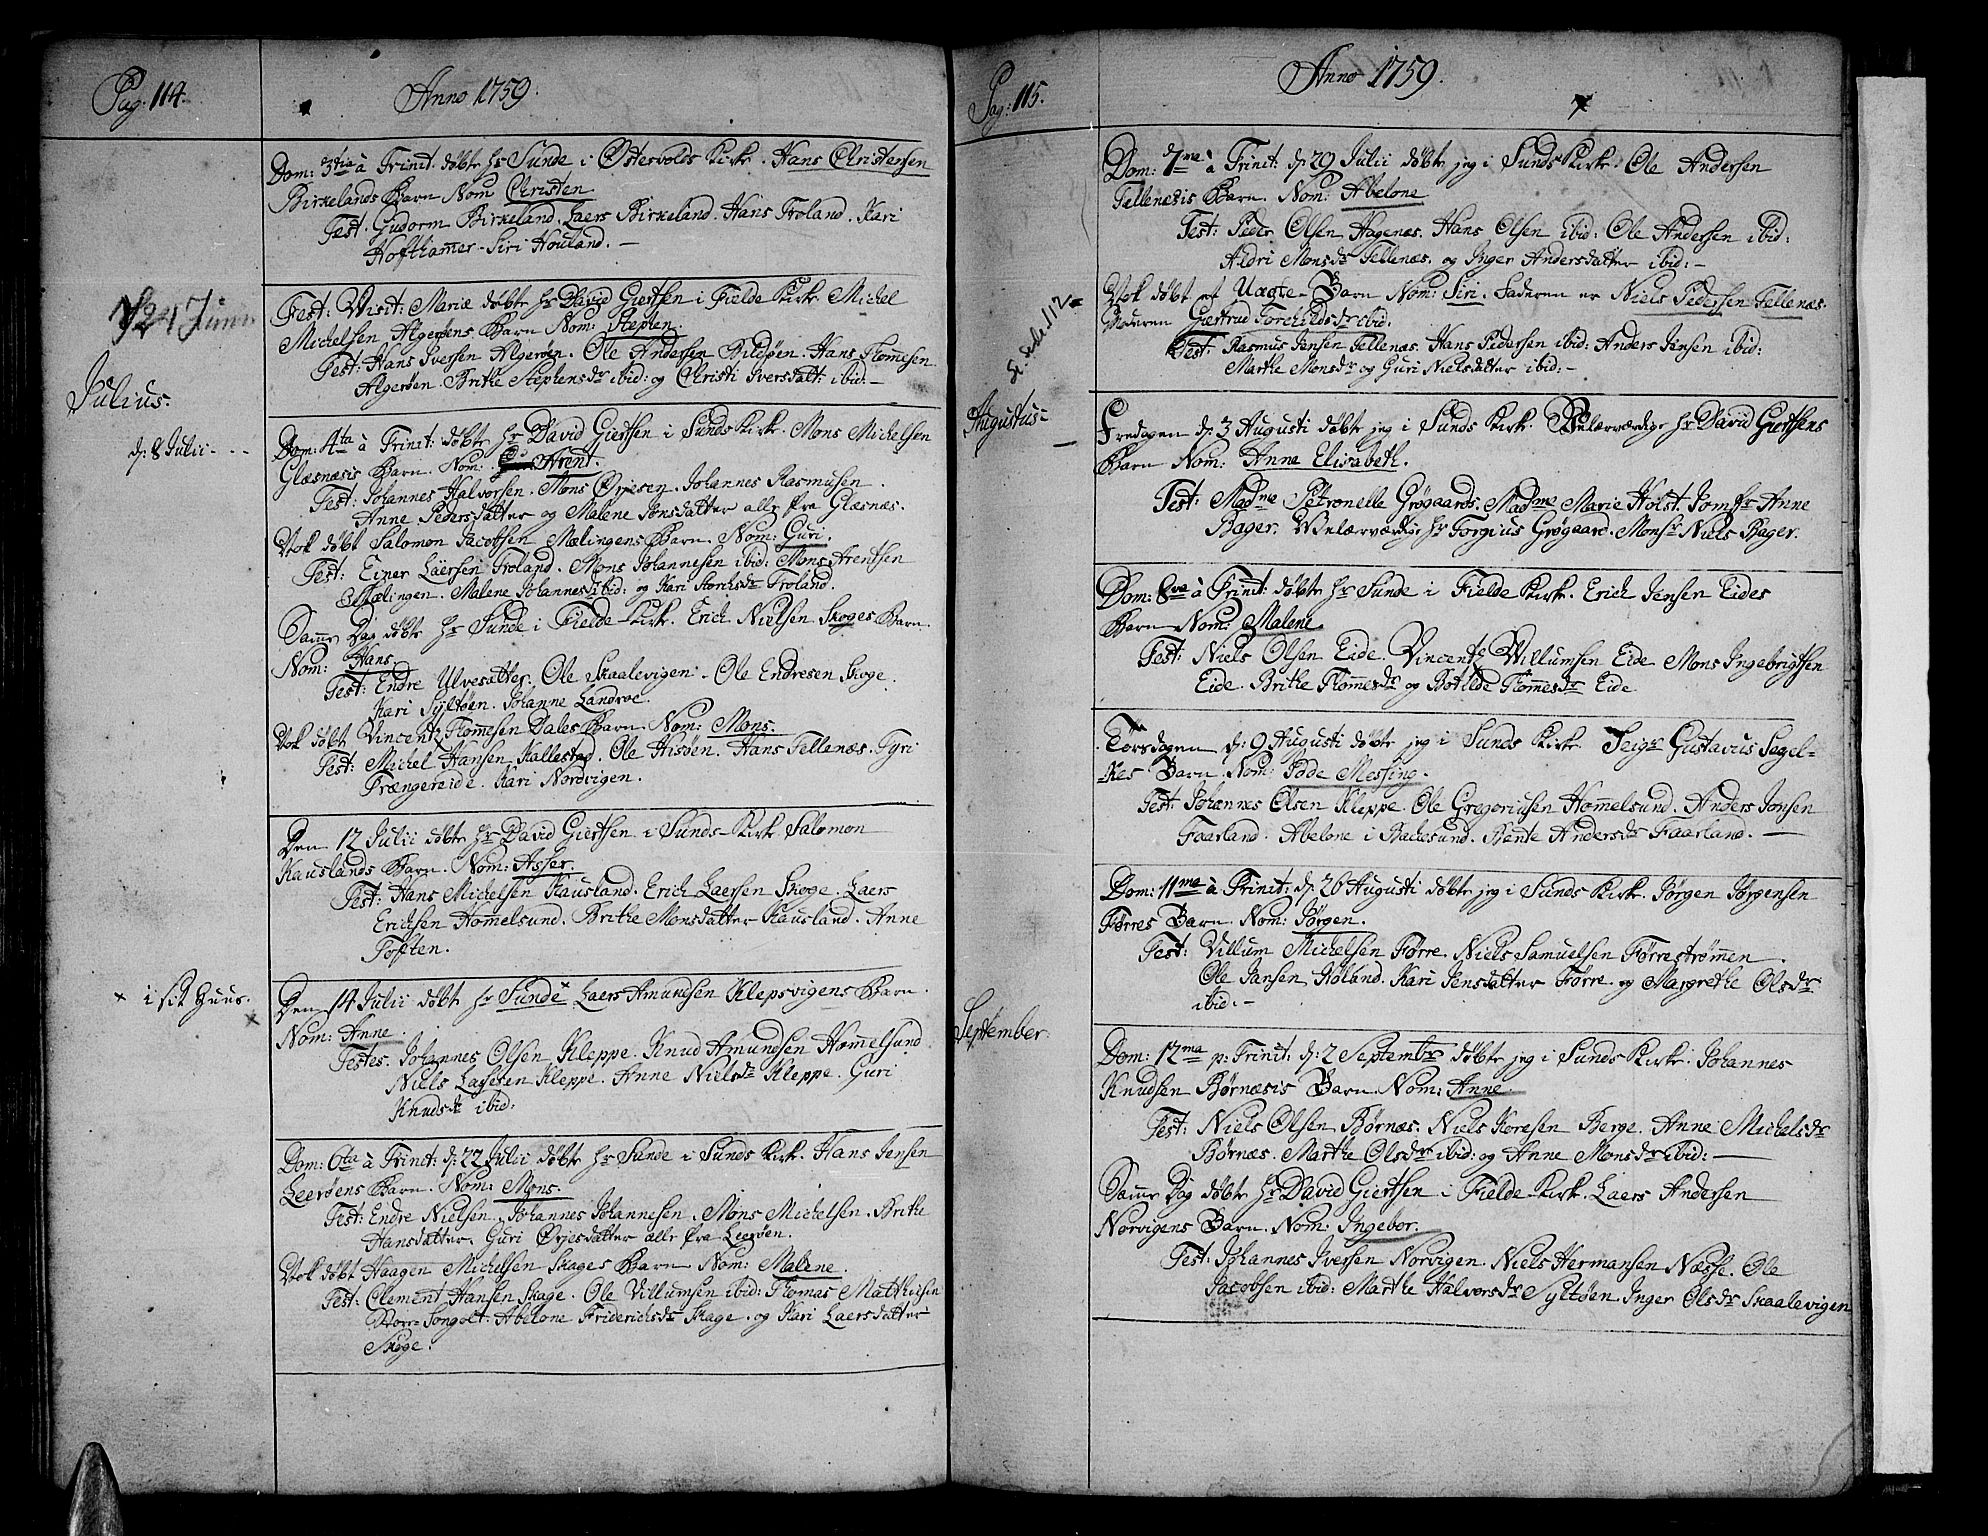 Pag. 114.
Anno 1759.
Dom: 3tia à Trinit: døbte hr Sunde i Østevolds Kirke. Hans Christensen
Birkelands Barn Nom: Christen
Test. Gudorm Birkeland. Laers Birkeland. Hans Troland. Kari
Hofthamer. Siri Houland. –
Fest: Visit: Mariæ døbte hr David Giertsen i Fielde Kirke Michel
Michelsen Algerøens Barn Nom: Stephen.
Test: Hans Iversen Algerøen. Ole Andersen Bildøen. Hans Thomesen
Algerøen. Brithe Stephensdr ibid: og Christi Iversdatt: ibid: –
Julius.
d: 8 Julii
Dom: 4ta à Trinit: døbte hr David Giertsen i Sunds Kirke. Mons Michelsen
Glæsnæsis Barn. Nom: Arent.
Test: Johannes Halvorsen. Mons Ørjesen. Johannes Rasmusen.
Anne Pedersdatter og Malene Jonsdatter alle fra Glæsnæs.
Nok døbt Salomon Jacobsen Mælingens Barn. Nom: Guri.
Test: Einer Laersen Troland. Mons Johannesen ibid: Mons Arentsen
Mælingen. Malene Johannesdr ibid: og Kari Troland.
Same Dag døbte hr Sunde i Fielde Kirke. Erich Nielsen Skoges Barn
Nom: Hans
Test: Endre Ulvesatter. Ole Skaalevigen. Ole Endresen Skoge.
Kari Syltøen. Johanne Landroe.
Nok døbt Vincentz Thomesen Dales Barn. Nom: Mons.
Test: Michel Hansen Kallestad. Ole Hisøen. Hans Tellenæs. Tyri
Trængereide. Kari Nordvigen.
Den 12 Julii døbte hr David Giertsen i Sunds Kirke Salomon
Kauslands Barn. Nom: Asser.
Test: Hans Michelsen Kausland. Erich Laersen Skoge. Laers
Erichsen Hommelsund. Brithe Monsdatter Kausland. Anne
Toften.
× i sit Huus.
Den 14 Julii døbt hr Sunde × Laers Amundsen Klepsvigens Barn.
Nom: Anne.
Testes. Johannes Olsen Kleppe. Knud Amundsen Hommelsund
Niels Lassesen Kleppe. Anne Nielsdr Kleppe. Guri
Knudsdr ibid:
Dom: 6ta à Trinit: d: 22 Julii døbte hr Sunde i Sunds Kirk. Hans Jensen
Leerøens Barn. Nom: Mons.
Test: Endre Nielsen. Johannes Johannesen. Mons Michelsen. Brithe
Hansdatter. Guri Ørjesdatter alle fra Leerøen.
Nok døbt Haagen Michelsen Skages Barn Nom: Malene.
Test: Clement Hansen Skage. Ole Villumsen ibid: Thomas Mathisen
Songolt: Abelone Friderichsdr Skage. og Kari Laersdatter
Skoge.
Pag: 115.
Anno 1759.
Dom: 7me à Trinit: d: 29 Julii døbte jeg i Sunds Kirke. Ole Andersen
Tellenæsis Barn. Nom: Abelone
Test: Peder Olsen Hagenæs. Hans Olsen ibid: Ole Andersen ibid:
Aldri Monsdr Tellenæs. og Inger Andersdatter ibid: –
Nok døbt et Uægte Barn Nom: Siri. Faderen er Niels Pedersen Tellenæs.
Moderen Giertrud Torchildsdr ibid.
Test: Rasmus Jensen Tellenæs. Hans Pedersen ibid: Anders Jensen ibid:
Marthe Monsdr og Guri Nielsdatter ibid: –
Augustus
Fredagen d: 3 Augusti døbte jeg i Sunds Kirk. Velærværdige hr David Giertsens
Barn Nom: Anne Elisabeth.
Test: Madme Petronelle Grøgaards. Madme Marie Holst. Jomfr Anne
Bager. Velærværdige hr Torgius Grøgaard. Monsr Niels Bager.
Dom: 8va à Trinit: døbte hr Sunde i Fielde Kirk. Erich Jensen Eides
Barn Nom: Malene.
Test: Niels Olsen Eide. Vincentz Villumsen Eide Mons Ingebrigtsen
Eide. Brithe Thomesdr og Botilde Thomesdr Eide
Torsdagen d: 9 Augusti døbte jeg i Sunds Kirke Seigr Gustavus Segel-
-kes Barn. Nom: Messing.
Test: Johannes Olsen Kleppe. Ole Gregoriusen Hommelsund. Anders Jonsen
Faarland. Abelone i Bachesund. Bente Andersdr Faarland. –
Dom: 11ma à Trinit: d: 26 Augusti døbte jeg i Sunds Kirk. Jørgen Jørgensen
Førres Barn. Nom: Jørgen.
Test: Villum Michelsen Førre. Niels Samuelsen Førrestrømen.
Ole Jansen Høland. Kari Jensdatter Førre. og Margrethe Olsdr
ibid. –
September.
Dom: 12ma p: Trinit: d: 2 Septembr døbte jeg i Sunds Kirk. Johannes
Knudsen Børnæsis Barn. Nom: Anne.
Test: Niels Olsen Børnæs. Niels Koresen Berge. Anne Michelsdr
Børnæs. Marthe Olsdr ibid: og Anne Monsdr ibid: –
Same Dag døbte hr David Giertsen i Fielde Kirk. Laers Andersen
Norvigens Barn. Nom: Ingebor.
Test: Johannes Iversen Norvigen. Niels Hermansen Næsse. Ole
Jacobsen ibid: Marthe Halvorsdr Syltøen. Inger Olsdr Skaalevigen